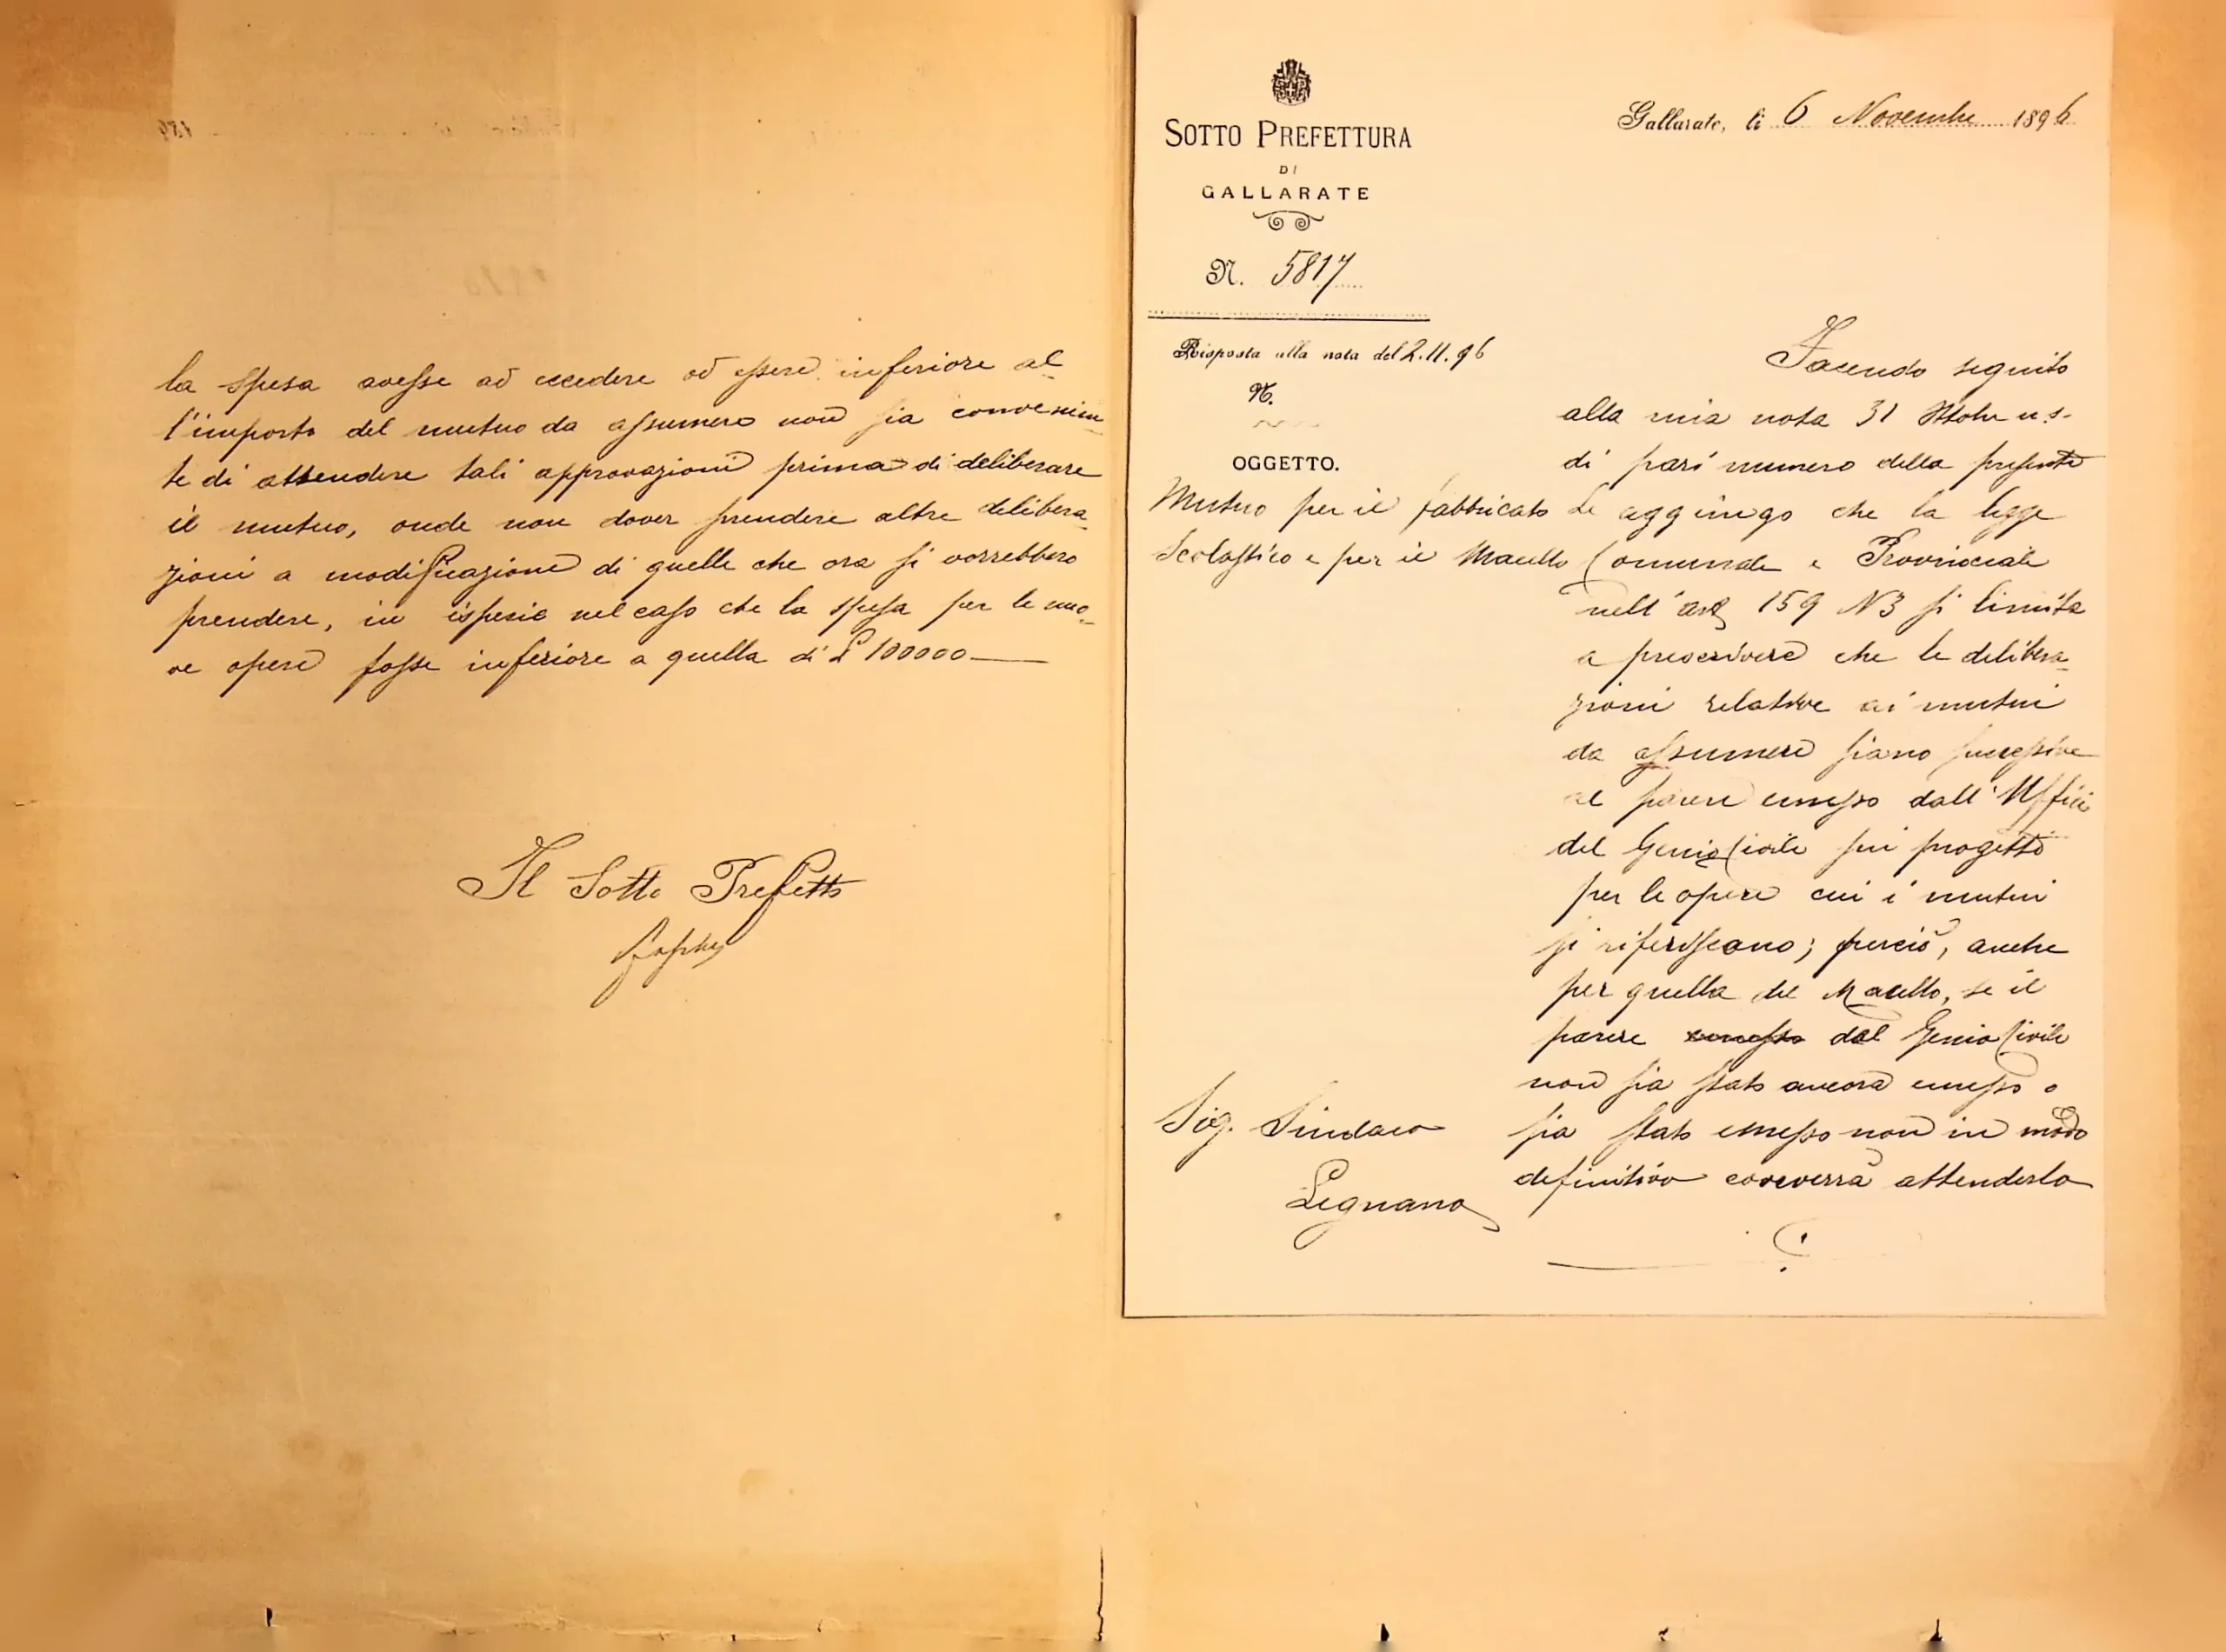 la spesa avesse ad eccedere od essere inferiore al-
l'importo del mutuo da assumere non sia convenien-
te di attendere tali approvazioni prima di deliberare
il mutuo, onde non dover prendere altre delibera-
zioni a modificazione di quelle che ora si vorrebbero
prendere, in ispecie nel caso che la spesa per le nuo-
ve opere fosse inferiore a quella di £ 100000
Il Sotto Prefetto
SOTTO PREFETTURA
DI
GALLARATE
N. 5817
Risposta alla nota del 2.11.96
N.
OGGETTO.
Mutuo per il fabbricato
Scolastico e per il Macello
Sig. Sindaco
Legnano
Gallarate, li 6 Novembre 1896
Facendo seguito
alla mia nota 31 Ottobre u.s.
di pari numero della presente
Le aggiungo che la legge
Comunale e Provinciale
nell'art 159 N3 si limita
a prescrivere che le delibera-
zioni relative ai mutui
da assumere siano successive
al parere emesso dall'Uffici
del Genio Civile sui progetti
per le opere cui i mutui
si riferiscano; perciò, anche
per quella del Macello, se il
parere emesso dal Genio Civile
non sia stato ancora emesso o
sia stato emesso non in modo
definitivo converrà attenderlo